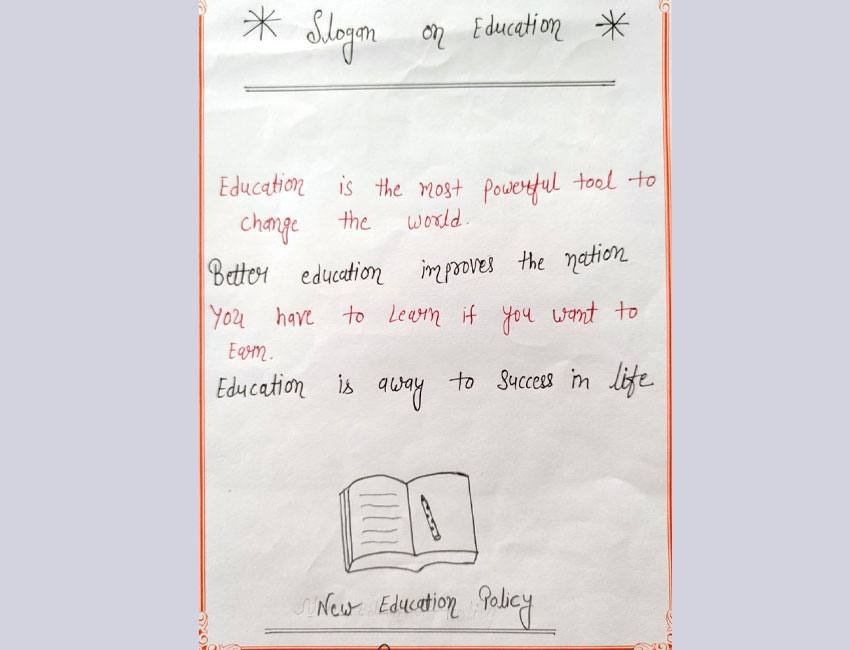 * Slogan on Education *
Education is the most powerful tool to
change the world.
Better education improves the nation
You have to Learn if you want to
Earn.
Education is away to Success in life
New Education Policy